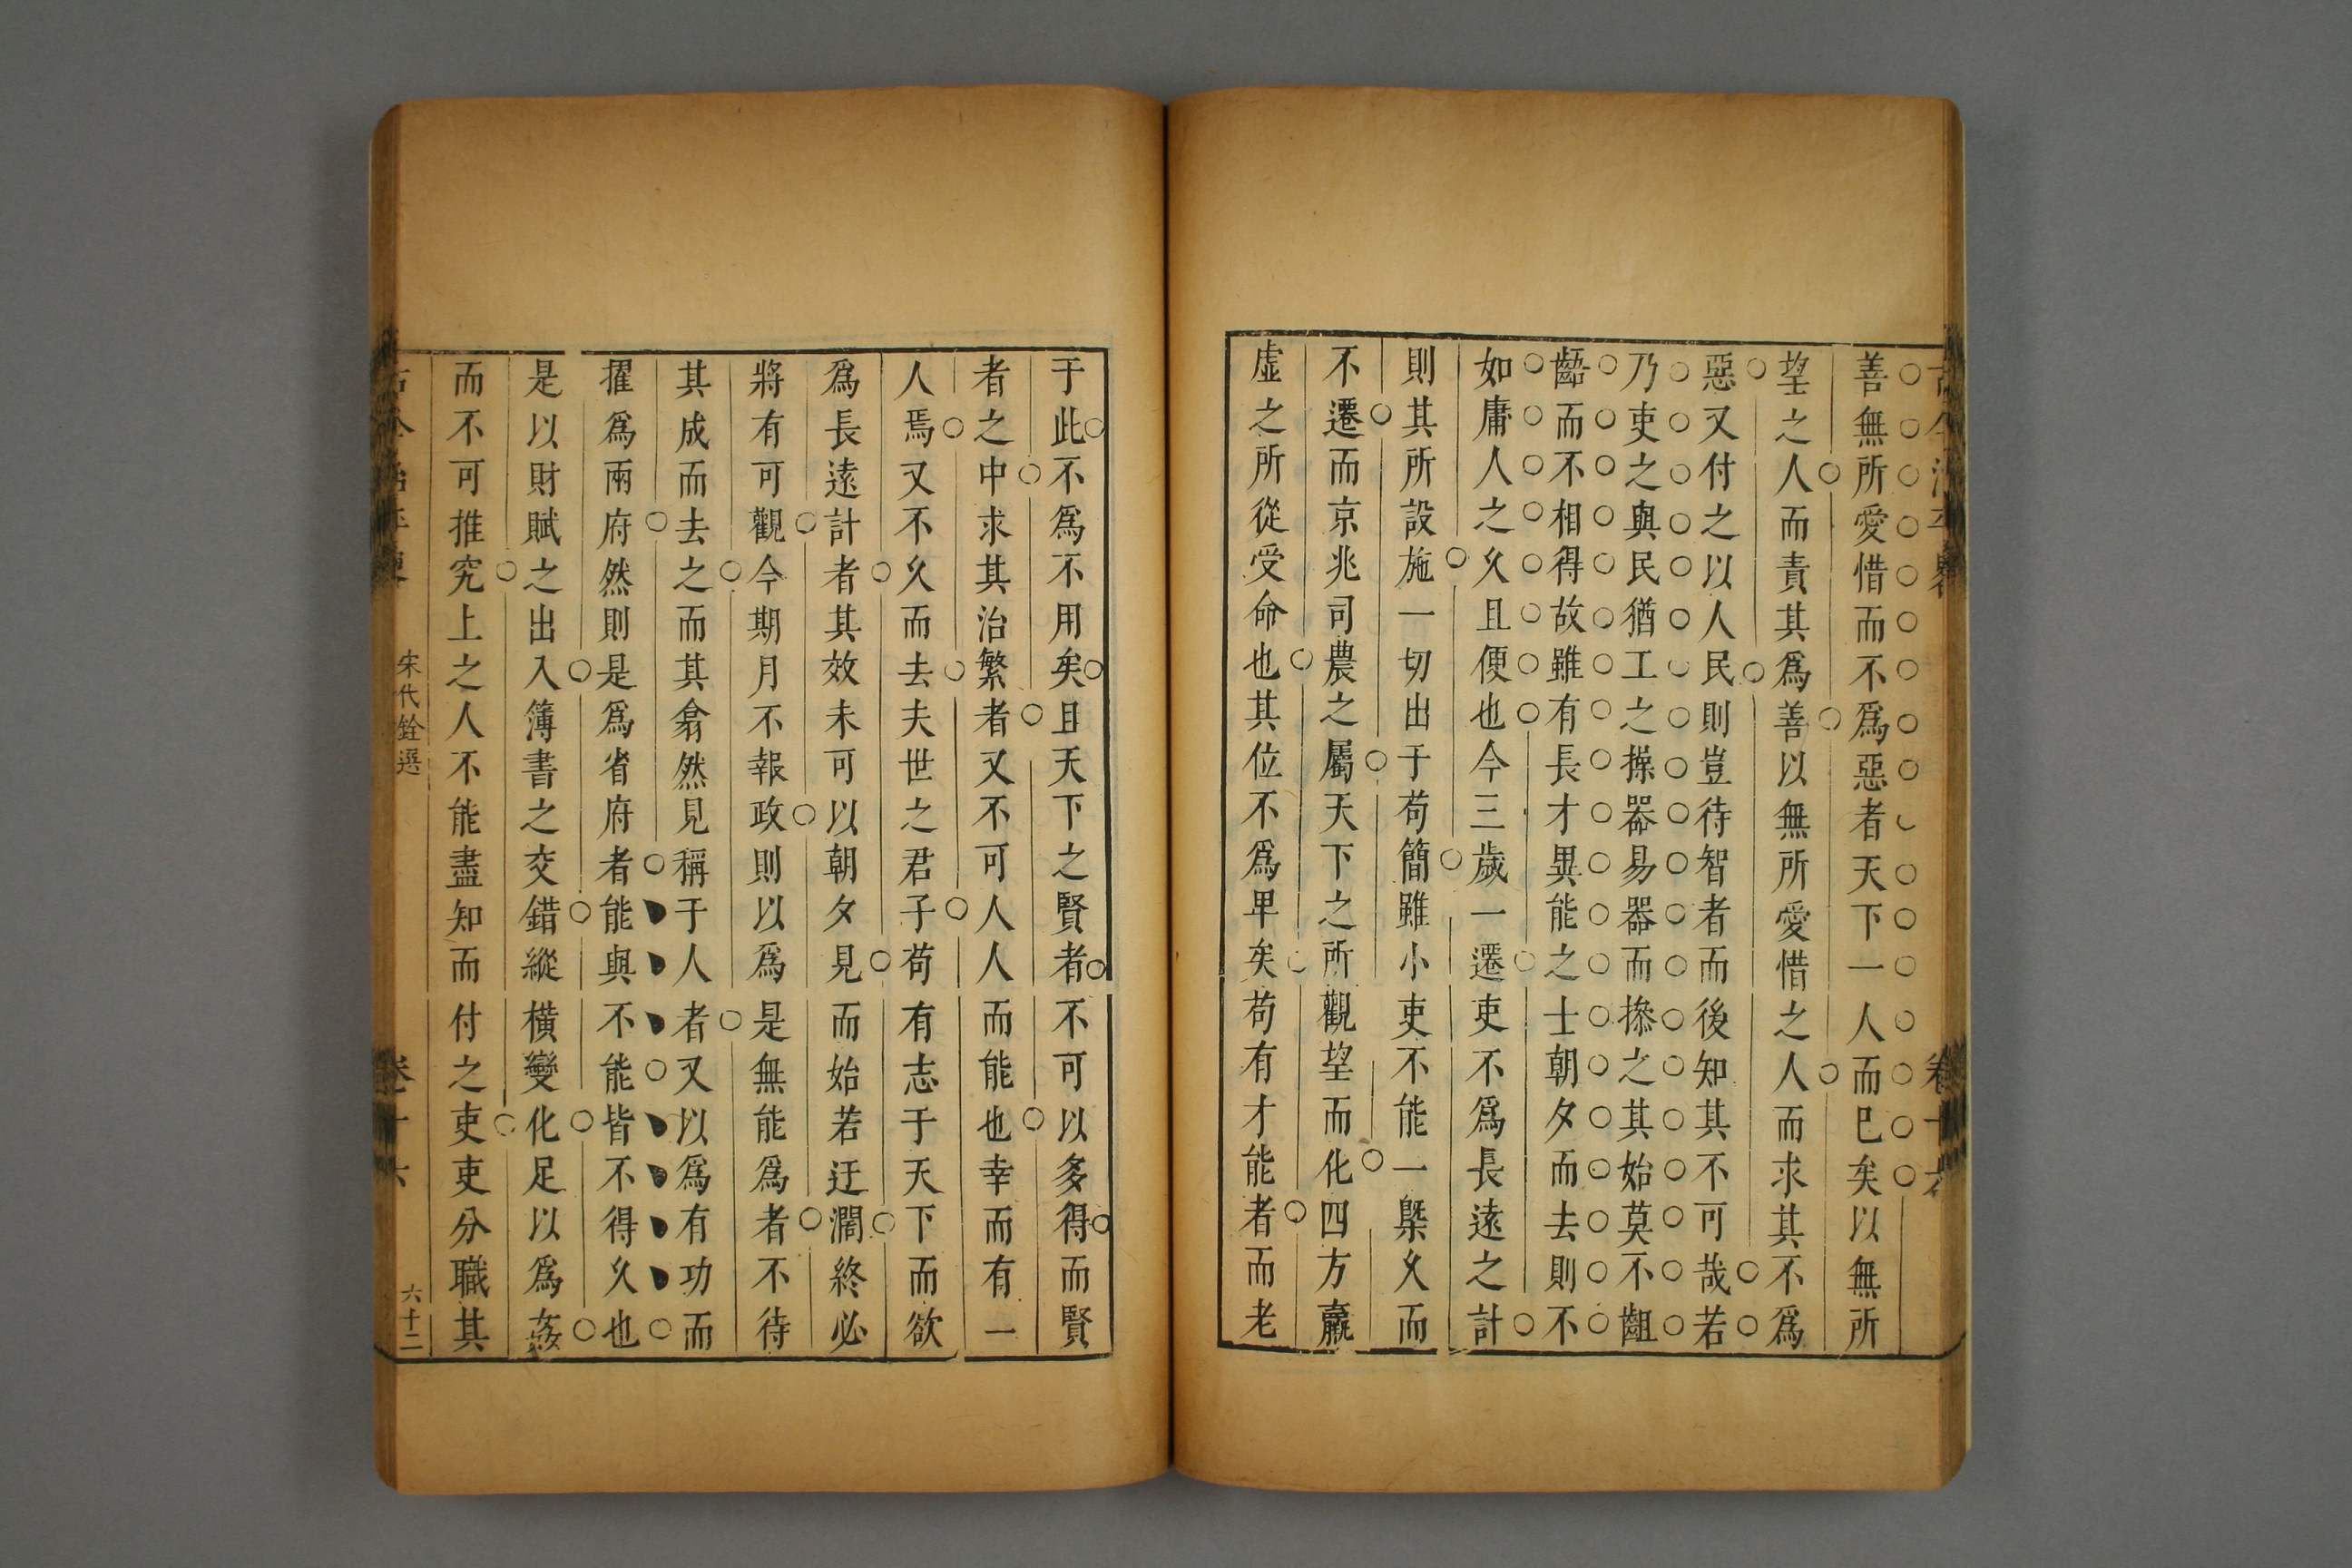 善無所愛惜而不爲惡者天下一人而巳矣以無所
望之人而責其爲善以無所愛惜之人而求其不爲
惡又付之以人民則豈待智者而後知其不可哉若
乃吏之與民猶工之操器易器而操之其始莫不齟
齬而不相得故雖有長才異能之士朝夕而去則不
如庸人之久且便也今三歲一遷吏不爲長遠之計
則其所設施一切出于苟簡雖小吏不能一槩久而
不遷而京兆司農之屬天下之所觀望而化四方羸
虛之所從受命也其位不爲卑矣苟有才能者而老
于此不爲不用矣且天下之賢者不可以多得而賢
者之中求其治繁者又不可人人而能也幸而有一
人焉又不久而去夫世之君子苟有志于天下而欲
爲長遠計者其效未可以朝夕見而始若迂濶終必
將有可觀今期月不報政則以爲是無能爲者不待
其成而去之而其翕然見稱于人者又以爲有功而
擢爲兩府然則是爲省府者能與不能皆不得久也
是以財賦之出入簿書之交錯縱橫變化足以爲姦
而不可推究上之人不能盡知而付之吏吏分職其
宋代銓選
卷十六
六十二